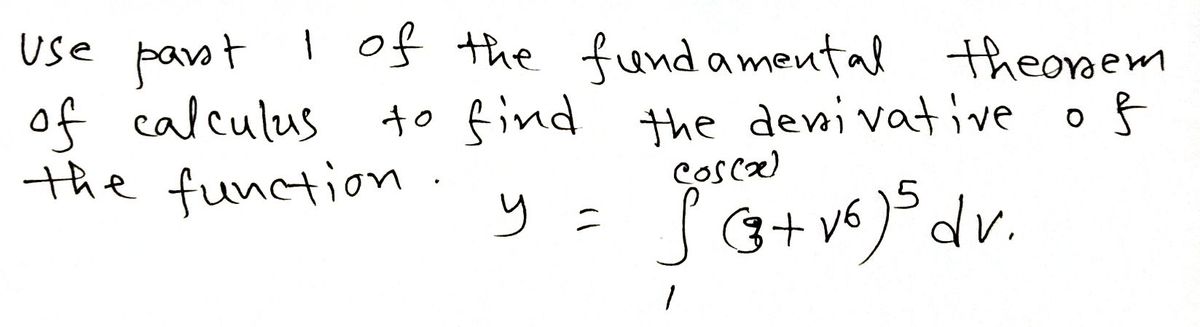 Use part 1 of the fundamental theorem
of calculus to find the derivative of
the function. y = ∫₁^cos(x) (3+v⁶)⁵ dv.